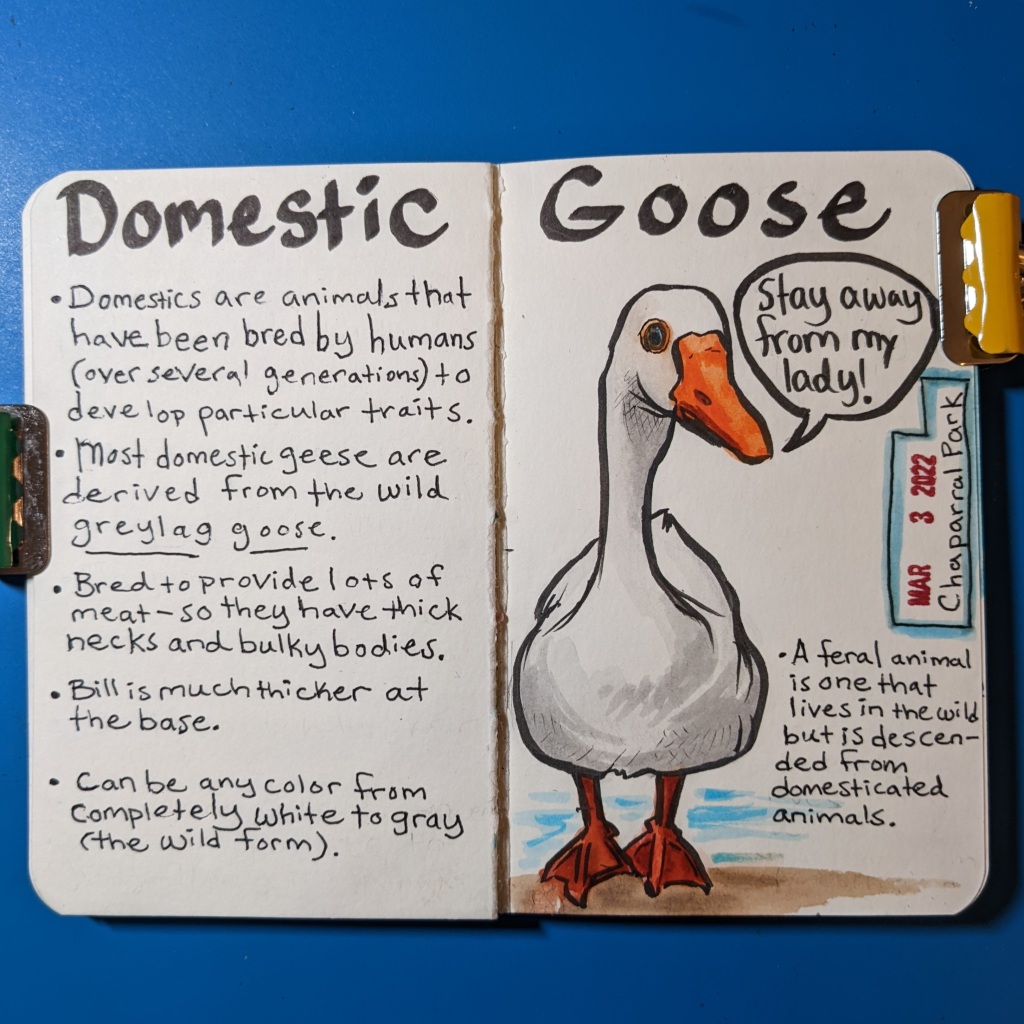 Domestic Goose
• Domestics are animals that
have been bred by humans
(over several generations) to
develop particular traits.
• Most domestic geese are
derived from the wild
greylag goose.
• Bred to provide lots of
meat – so they have thick
necks and bulky bodies.
• Bill is much thicker at
the base.
• Can be any color from
completely white to gray
(the wild form).
Stay away
from my
lady!
MAR 3 2022
Chaparral Park
• A feral animal
is one that
lives in the wild
but is descen-
ded from
domesticated
animals.